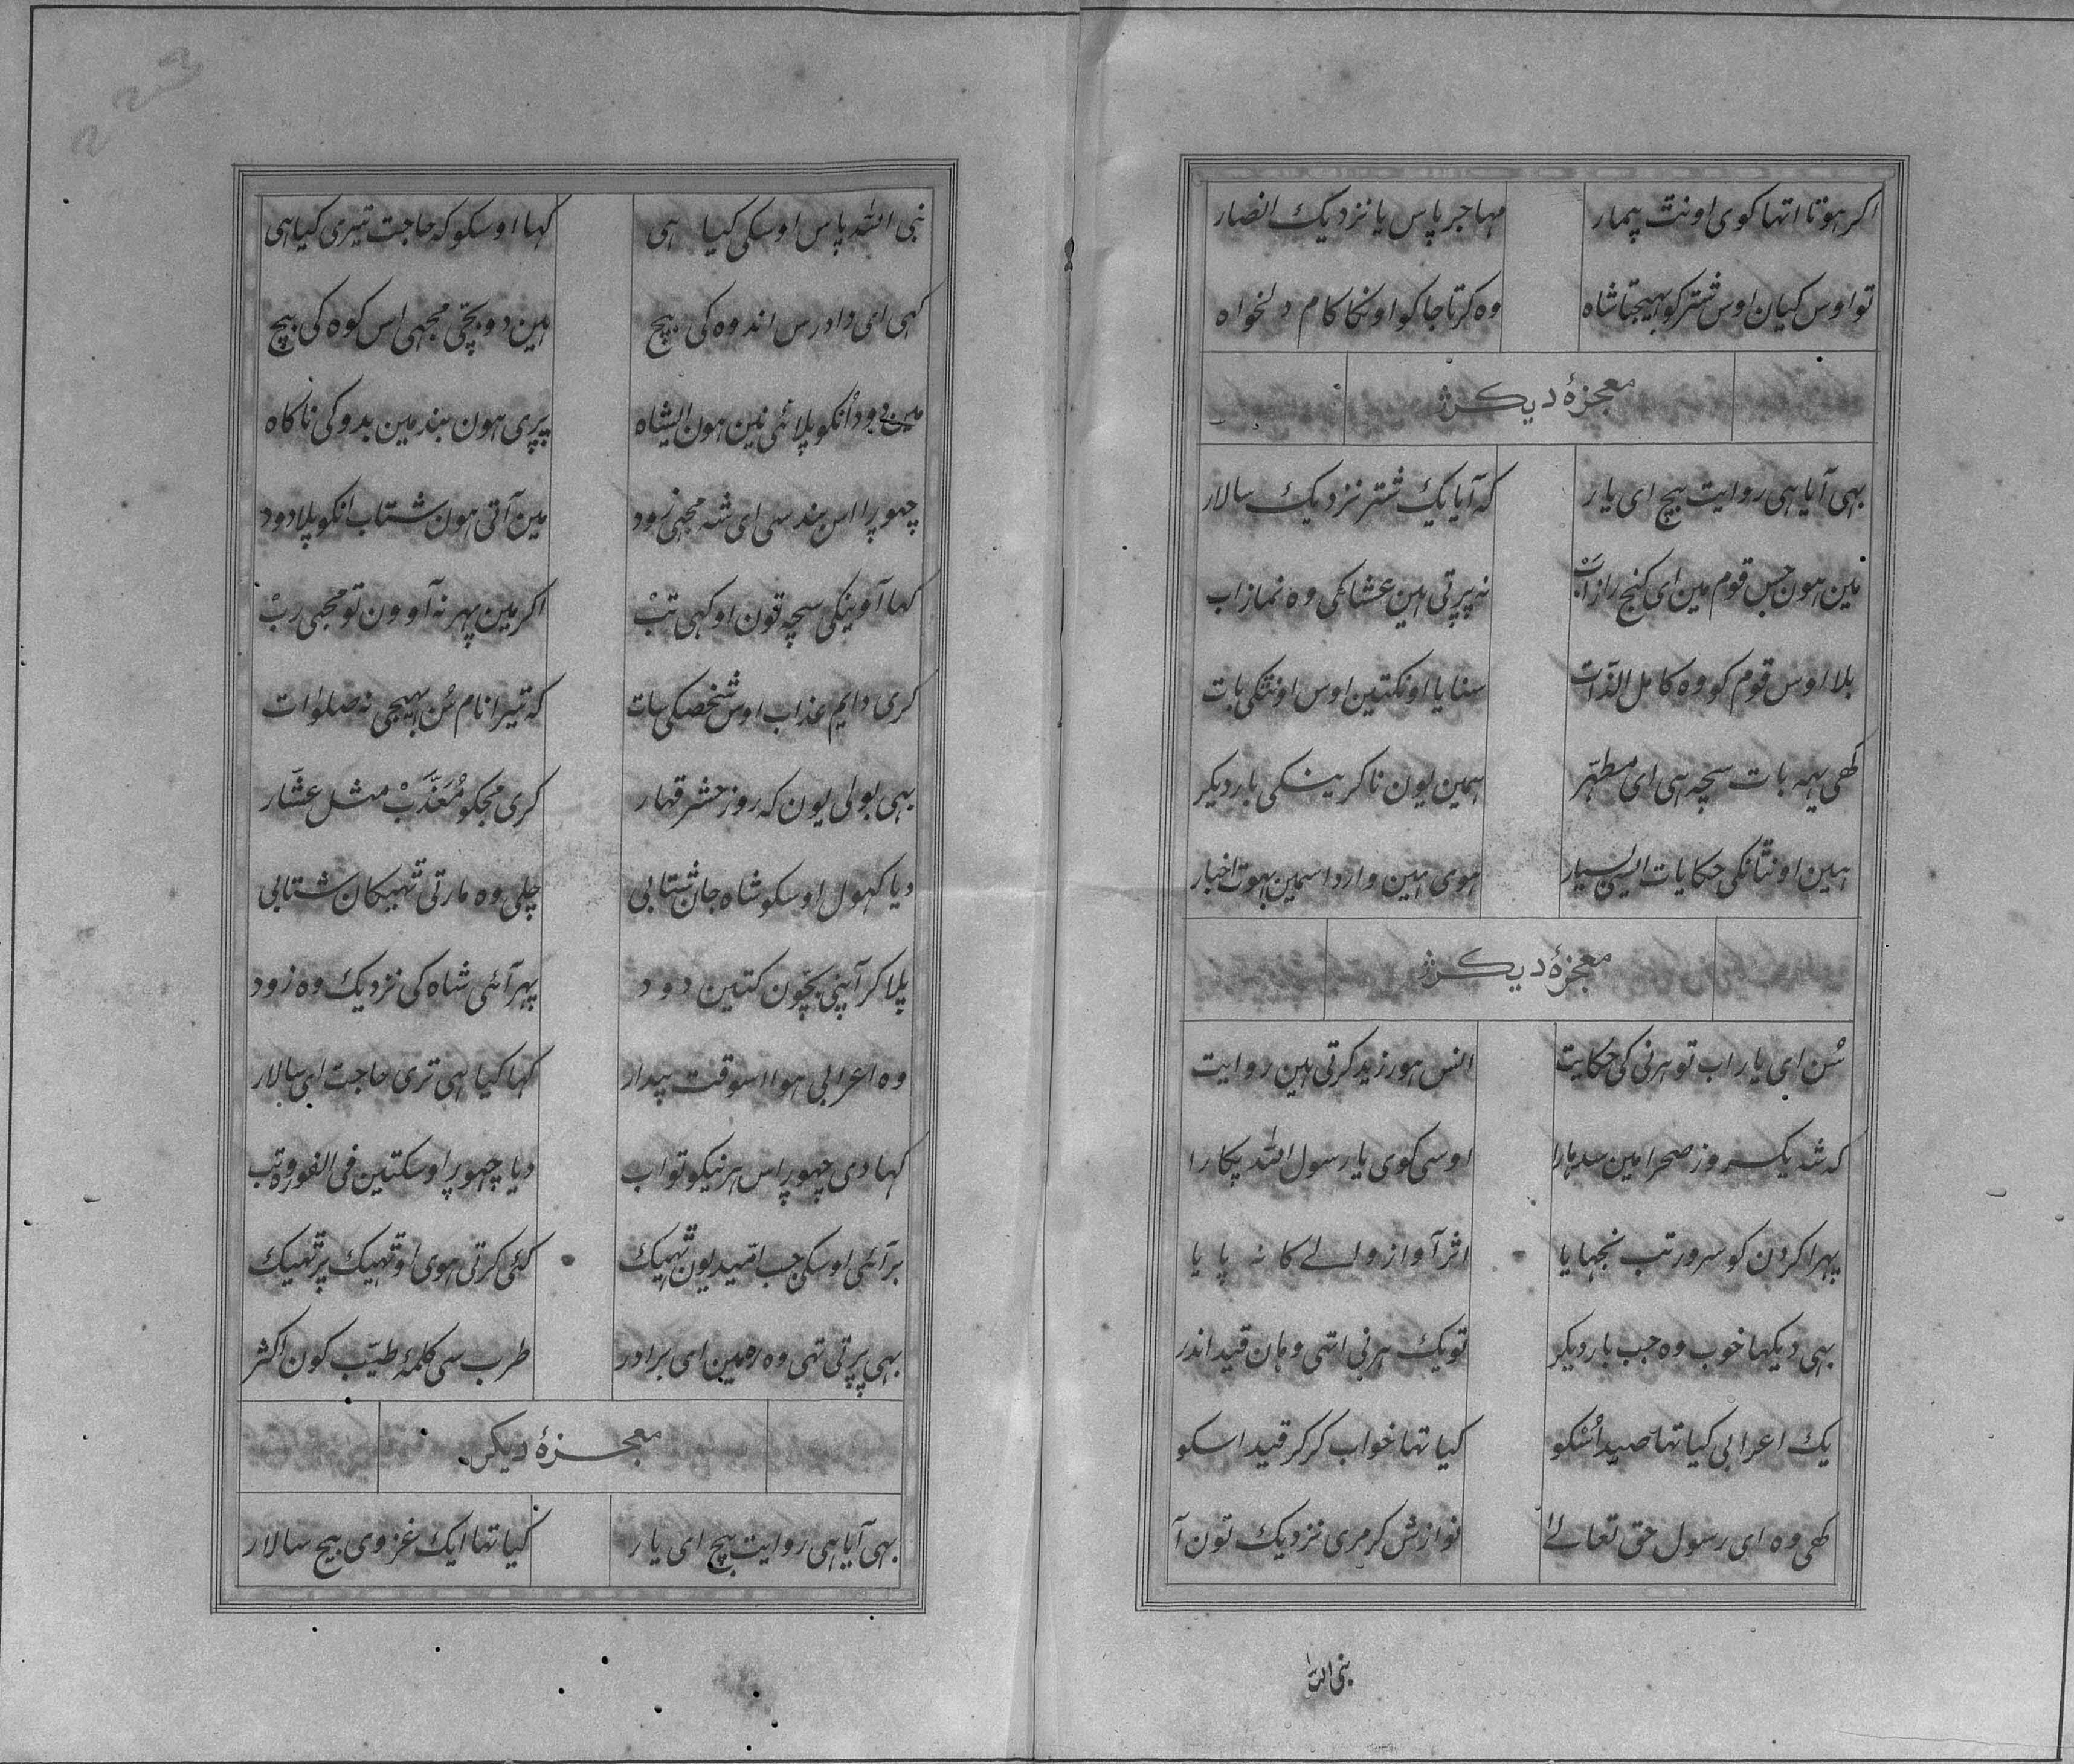 اکر هوتا اتها کوی اونت پیمار مهاجر پاس یا نزدیك انصار
تو اوس کیان اوس شتر کو بهیجتا شاه وه کرتا جا کو اونکا کام دلخواه
معجزهٔ دیکر
بهی آیا هی روایت بیچ ای یار که آیا یك شتر نزدیك سالار
مین هون جس قوم مین ای کنج راز اب نه پرتی هین عشا کی وه نماز اب
بلا اوس قوم کو وه کامل الذات سنایا اونکتین اوس اونتکی بات
کهی یهه بات سچه هی ای مطهّر همین یون نا کرینکی بار دیکر
هین اونتانکی حکایات ایسی بسیار هوی هین وارد اسمین بهوت اخبار
معجزهٔ دیکر
سُن ای یار اب تو هرنی کی حکایت انس هور زید کرتی هین روایت
که شه یک روز صحرا مین سدهارا اوسی کوی یا رسول الله پکارا
پهرا کردن کو سرور تب نجهایا اثر آواز والے کا نه پایا
بهی دیکها خوب وه جب بار دیکر تو یك هرنی اتهی وهان قید اندر
یك اعرابی کیا تها صید اُسکو کیا تها خواب کر کر قید اسکو
کهی وه ای رسول حق تعالےٰ نوازش کر مری نزدیك تون آ
نبی الله
نبی الله پاس اوسکی کیا هی کها اوسکو که حاجت تیری کیا هی
کهی ای دادرس اندوه کی بیچ هین دو بچّی مجهی اس کوه کی بیچ
مین دود انکو پلانی نین هون ایشاه پری هون بند مین بدو کی ناکاه
چهور اس بند سی ای شه مجهی زود مین آتی هون شتاب انکو پلا دود
کها آوینکی سچه تون او کهی تبْ اکر مین پهر نه آوون تو مجهی ربْ
کری دایم عذاب اوس شخصکی سات که تیرا نام سُن بهیجی نه صلوات
بهی بولی یون که روز حشر قهار کری مجکو مُعَذَّبْ مثل عشّار
دیا کهول اوسکو شاه جان شتابی چلی وه مارتی تهیکان شتابی
پلا کر آپنی بچون کتین دود پهر آئی شاه کی نزدیك وه زود
وه اعرابی هوا اسوقت بیدار کها کیا هی تری حاجت ای سالار
کها دی چهور اس هرنیکو تو اب دیا چهور اوسکتین فی الفور وه تب
بر آئی اوسکی جب امّید یون تهیك کئی کرتی هوی او تهیك پر تهیك
بهی پرتی تهی وه ره مین ای برادر طرب سی کلمهٔ طیّب کون اکثر
معجزهٔ دیکر
بهی آیا هی روایت بیچ ای یار کیا تها ایک غزوی بیچ سالار